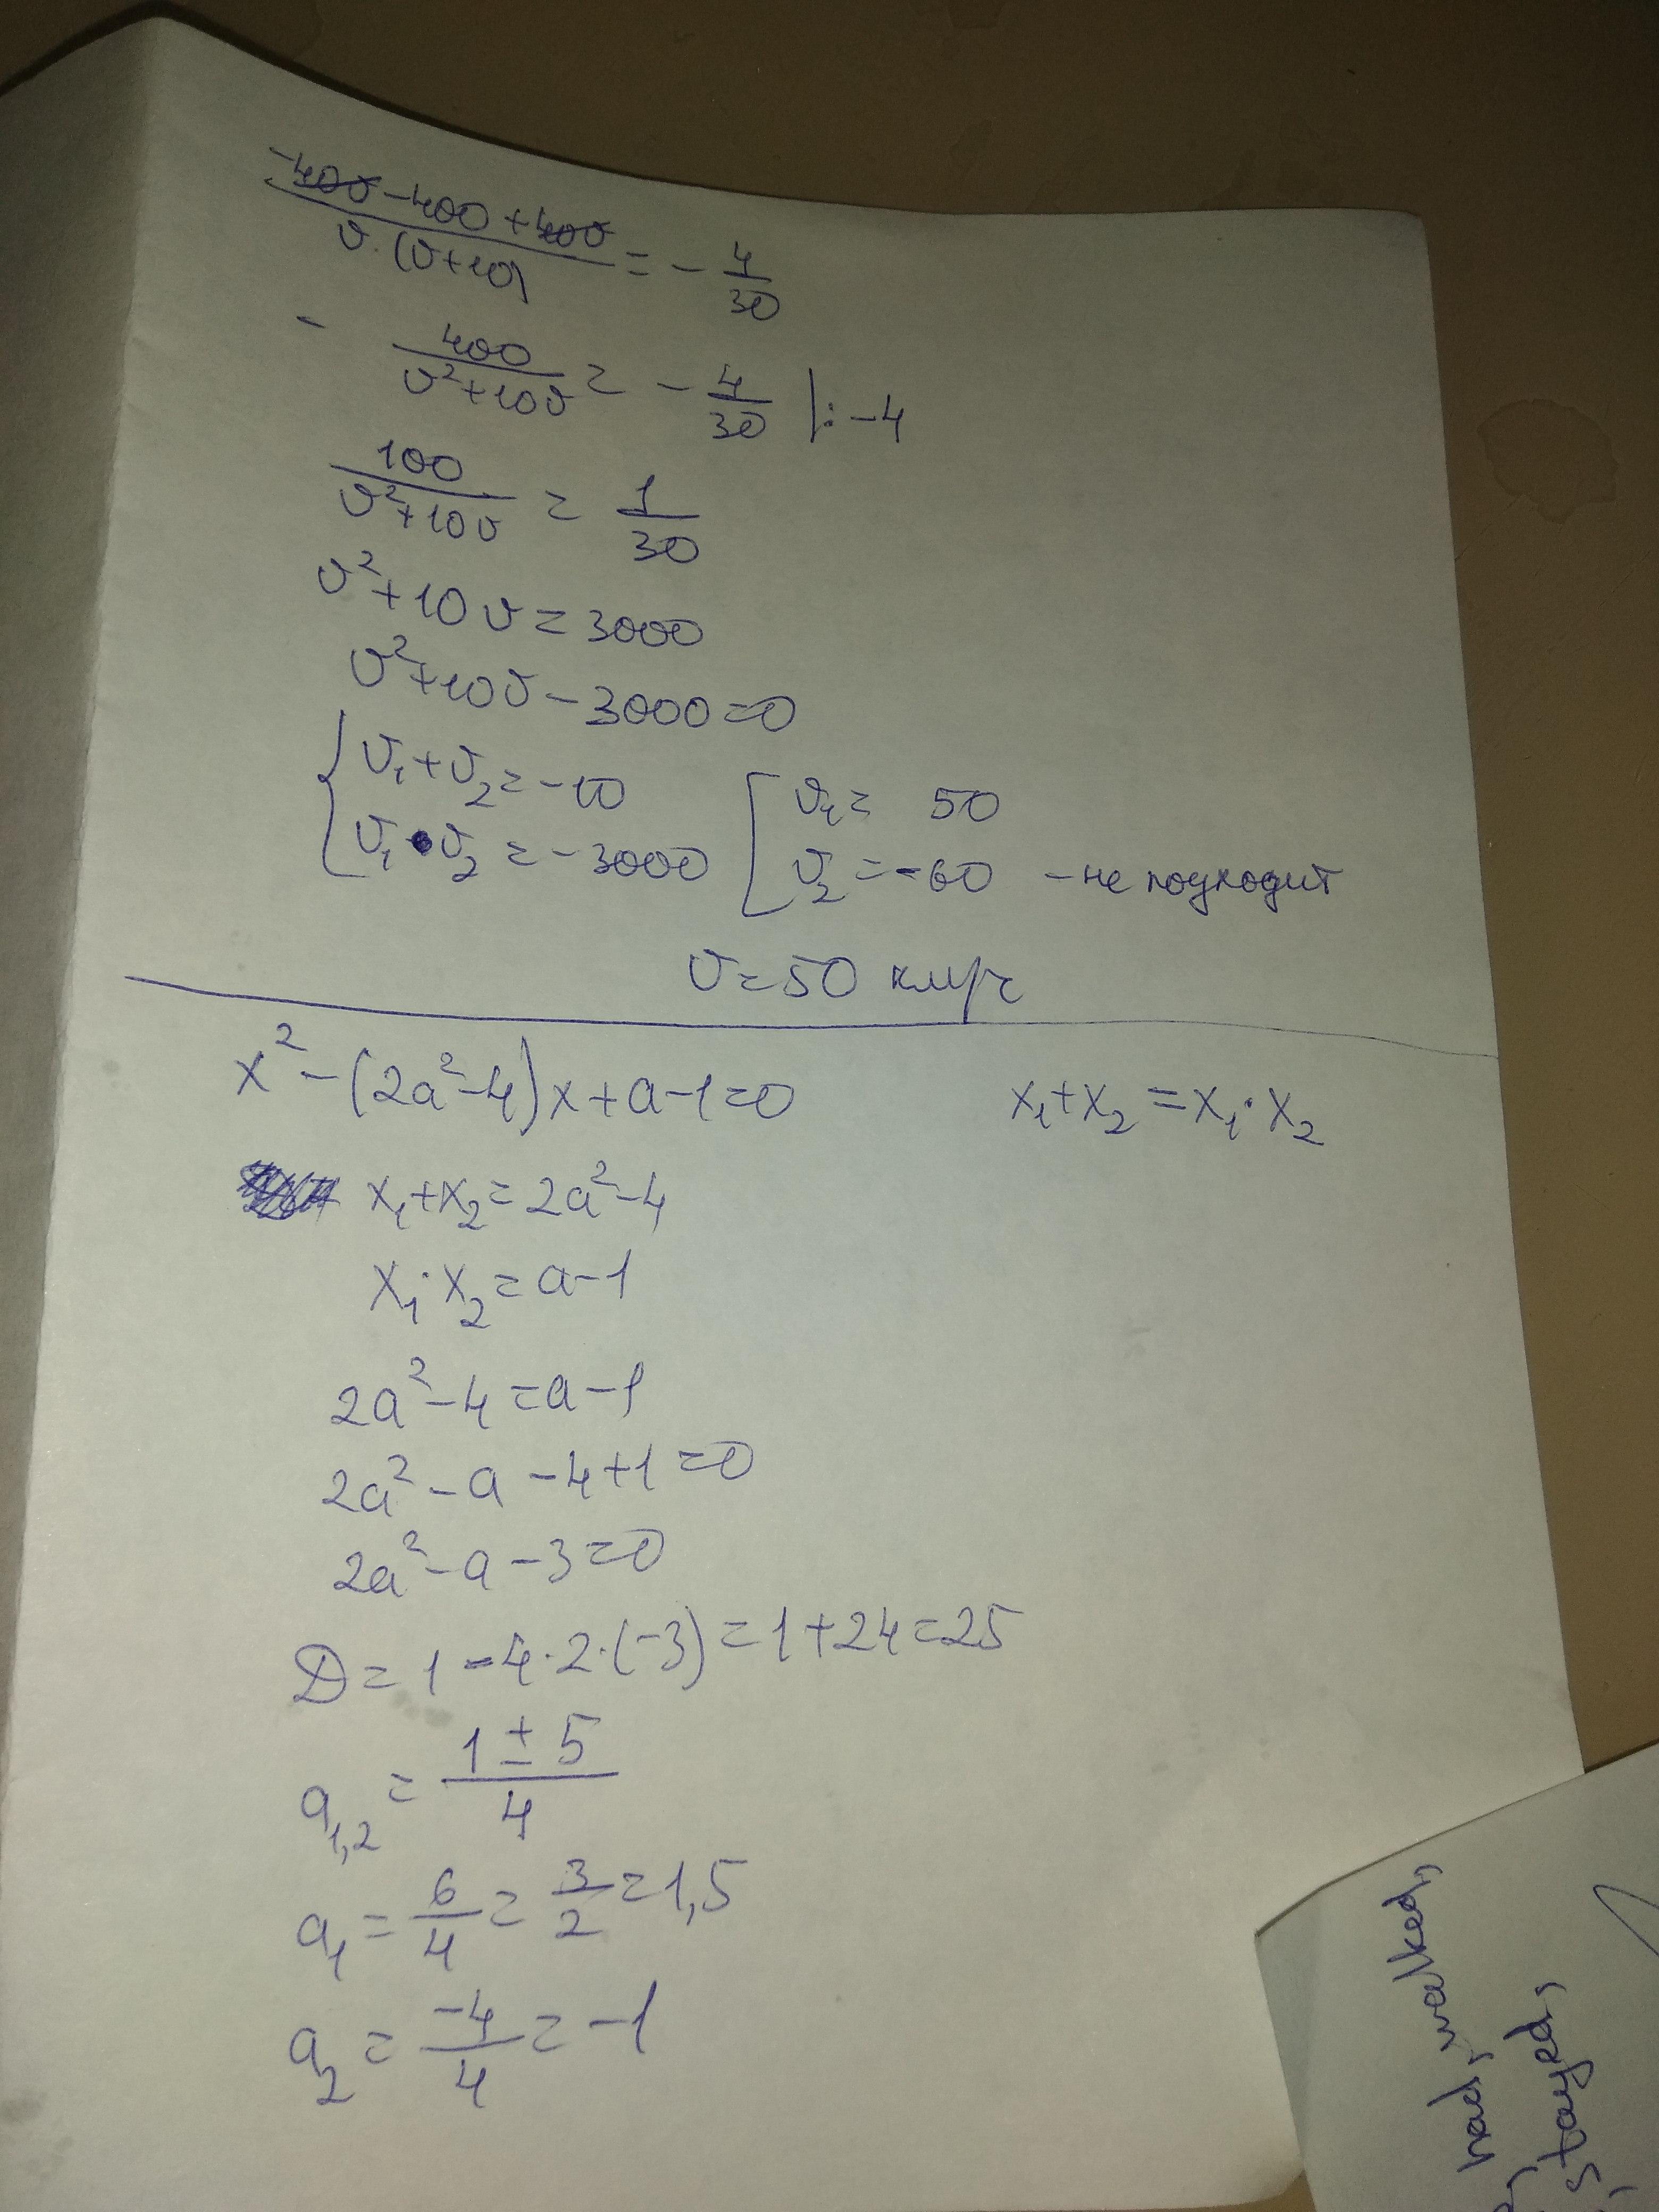 (-40v - 400 + 40v)/(v·(v+10)) = -4/30
- 400/(v²+10v) = -4/30 |: -4
100/(v²+10v) = 1/30
v²+10v = 3000
v²+10v-3000=0
{ v₁+v₂=-10
v₁·v₂=-3000
[ v₁= 50
v₂=-60 - не подходит
v=50 км/ч
x²-(2a²-4)x+a-1=0
x₁+x₂=x₁·x₂
x₁+x₂=2a²-4
x₁·x₂=a-1
2a²-4=a-1
2a²-a-4+1=0
2a²-a-3=0
D=1-4·2·(-3)=1+24=25
a₁,₂=(1±5)/4
a₁=6/4=3/2=1,5
a₂=-4/4=-1
had, walked,
stayed,